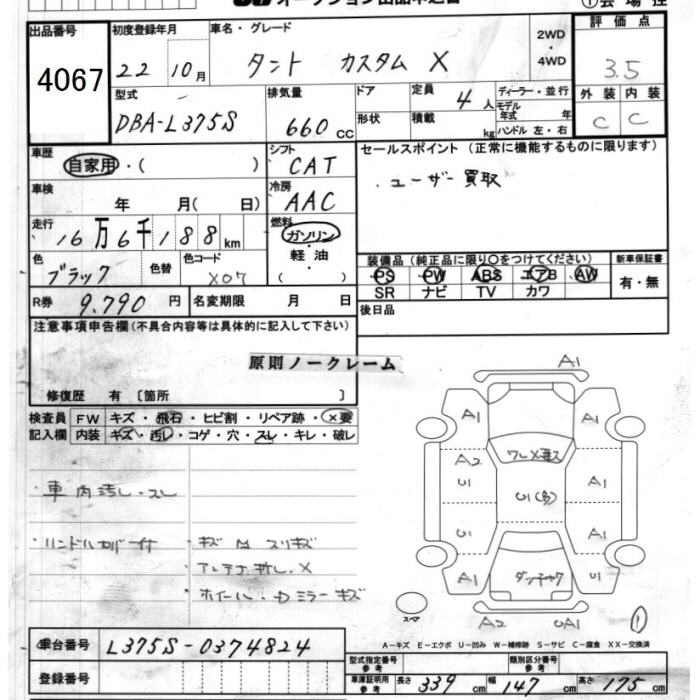 オークション出品申込書
①会場控
出品番号
4067
初度登録年月
22 10月
車名・グレード
タント カスタム X
2WD
・
4WD
評価点
3.5
型式
DBA-L375S
排気量
660 cc
ドア
形状
定員
4 人
積載
kg
ディーラー・並行
モデル年式 年
ハンドル 左・右
外装 内装
C C
車歴
自家用・( )
シフト
CAT
セールスポイント(正常に機能するものに限ります)
ユーザー買取
車検
年 月( 日)
冷房
AAC
走行
16万6千188km
燃料
ガソリン
・
軽油
・
( )
色
ブラック
色替
色コード
X07
装備品(純正品に限り〇をつけてください)
PS PW ABS エアB AW
SR ナビ TV カワ
新車保証書
有・無
R券
9.790円
名変期限 月 日
後日品
注意事項申告欄(不具合内容等は具体的に記入して下さい)
原則ノークレーム
修復歴 有 [箇所 ]
検査員
記入欄
FW キズ・飛石・ヒビ割・リペア跡・×要
内装 キズ・汚レ・コゲ・穴・スレ・キレ・破レ
・車内汚し・スレ
・ハンドルカバー付
・キズ 凹 スリキズ
・アンテナ折レ・X
・ホイール・ミラーキズ
A1
A1
ワレX要ス
A1
A2
U1
U1
A1
U1
A1
A1
ダッチャク
U1
スペア
A2
UA1
①
A-キズ E-エクボ U-凹み W-補修跡 S-サビ C-腐食 XX-交換済
車台番号
L375S-0374824
登録番号
型式指定番号
参考
類別区分番号
参考
車庫証明用
参考
長さ 339 cm 幅 147 cm 高さ 175 cm